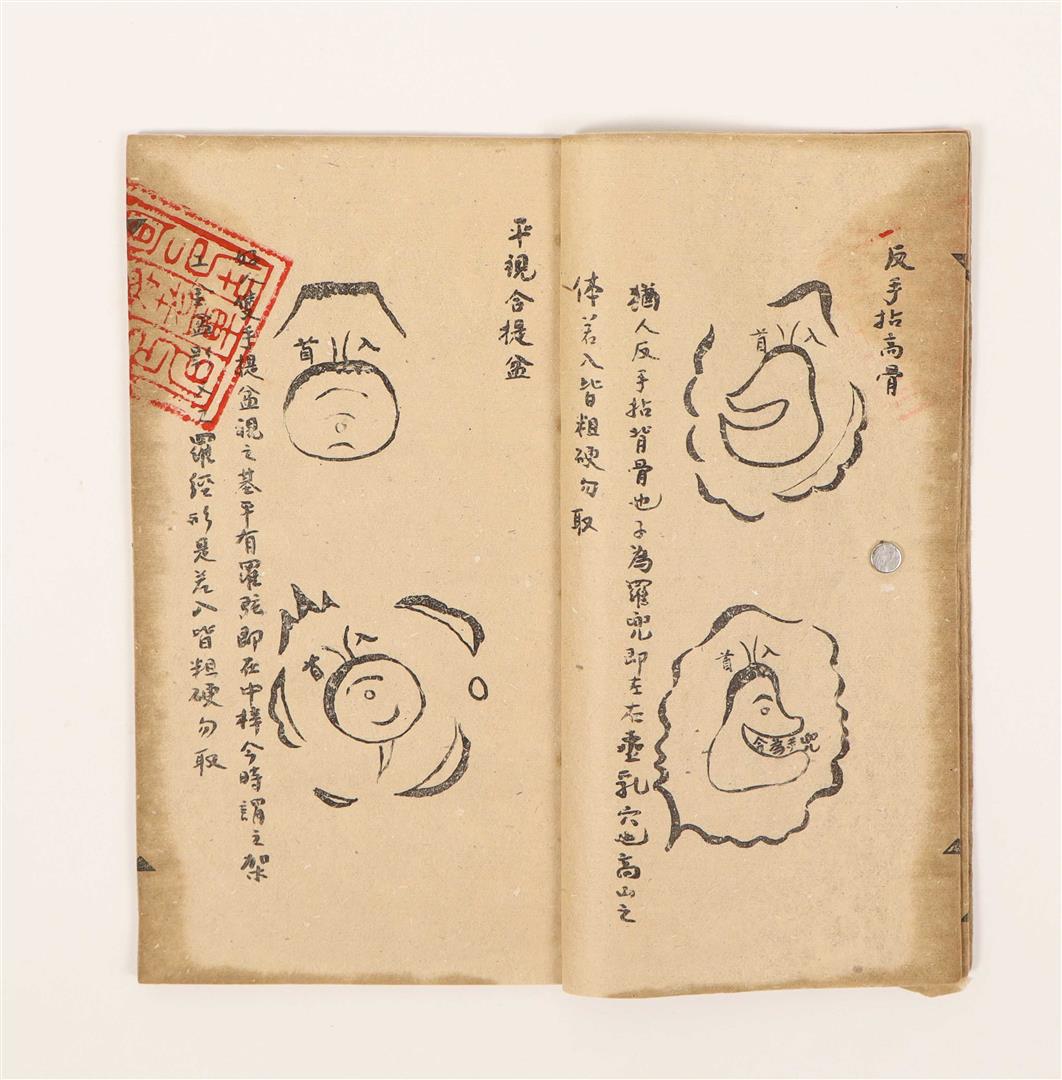 反手拈高骨
入首
入首
兜手為令
猶人反手拈背骨也子為羅兜即左右垂乳穴也高山之
体若入皆粗硬勿取
平視合提盆
入首
入首
雙手提盆視之基平有羅弦即在中棒今時謂之架
羅經形是若入皆粗硬勿取